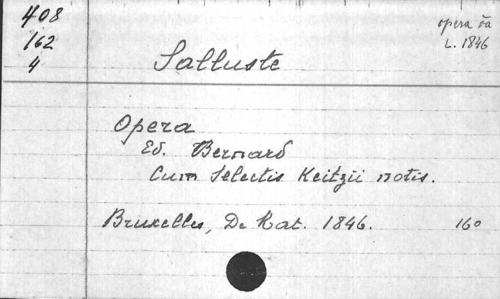 408
162
4
opera
L. 1846
Salluste
Opera
Ed. Bernard
Cum Selectis Keitzii notis.
Bruxelles, De Mat. 1846. 160